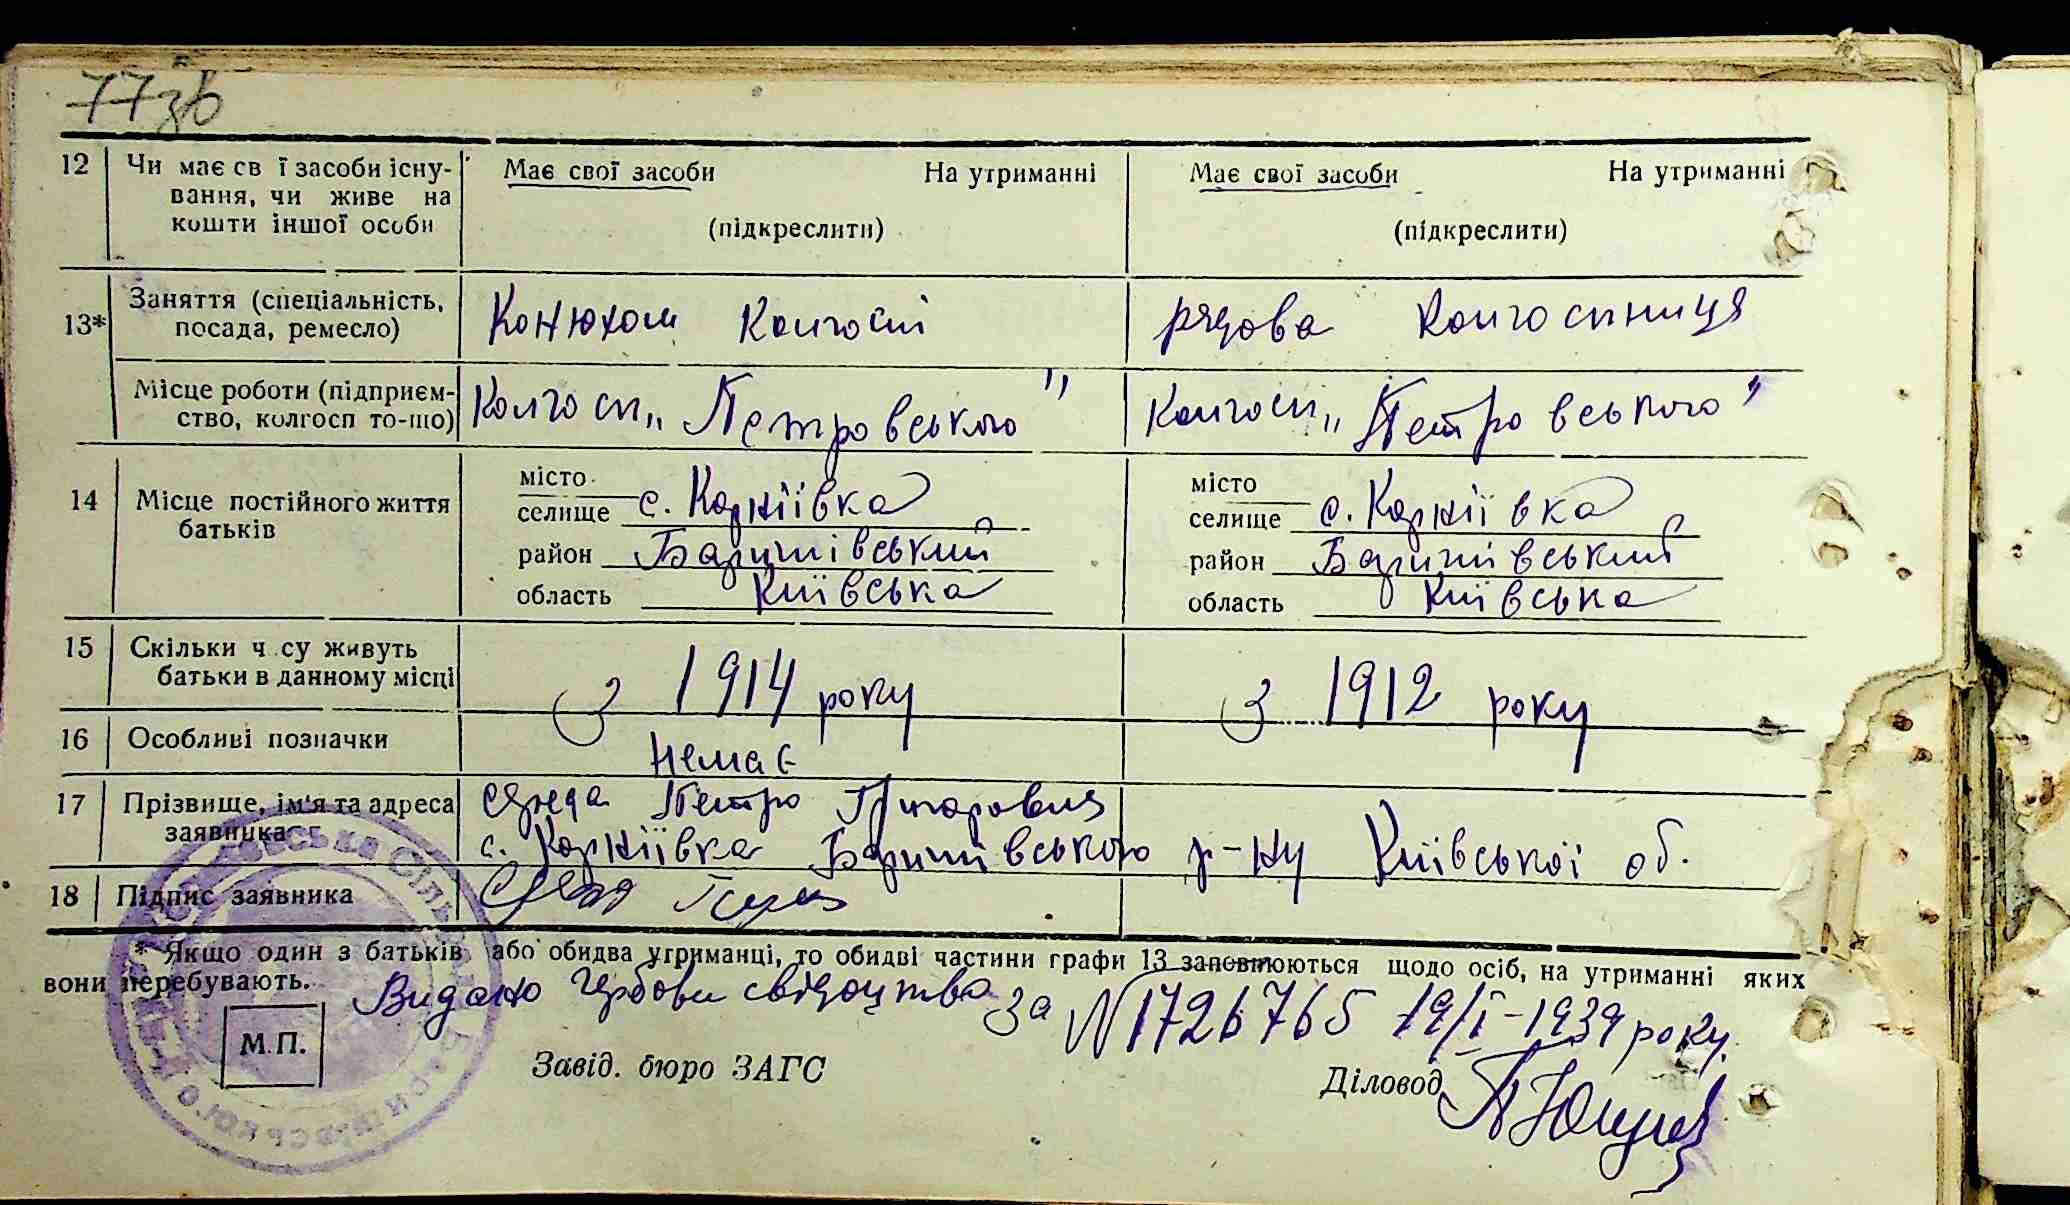 77зв
12 Чи має св ї засоби існу- Має свої засоби На утриманні Має свої засоби На утриманні
вання, чи живе на
кошти іншої особи (підкреслити) (підкреслити)
13* Заняття (спеціальність, посада, ремесло) Конюхом колгоспі рядова колгоспниця
Місце роботи (підприєм- Колгосп „Петровського" Колгосп „Петровського"
ство, колгосп то-що)
14 Місце постійного життя батьків
місто місто
селище с. Корніївка селище с. Корніївка
район Баришівський район Баришівський
область Київська область Київська
15 Скільки ч су живуть
батьки в данному місці З 1914 року З 1912 року
16 Особливі позначки Немає
17 Прізвище, ім'я та адреса Середа Петро Григорович
заявника с. Корніївка Баришівського р-ну Київської об.
18 Підпис заявника Середа
* Якщо один з батьків або обидва утриманці, то обидві частини графи 13 заповнюються щодо осіб, на утриманні яких
вони перебувають.
Видано гербове свідоцтво за N 1726765 19/I-1939 року.
М.П.
Завід. бюро ЗАГС Діловод